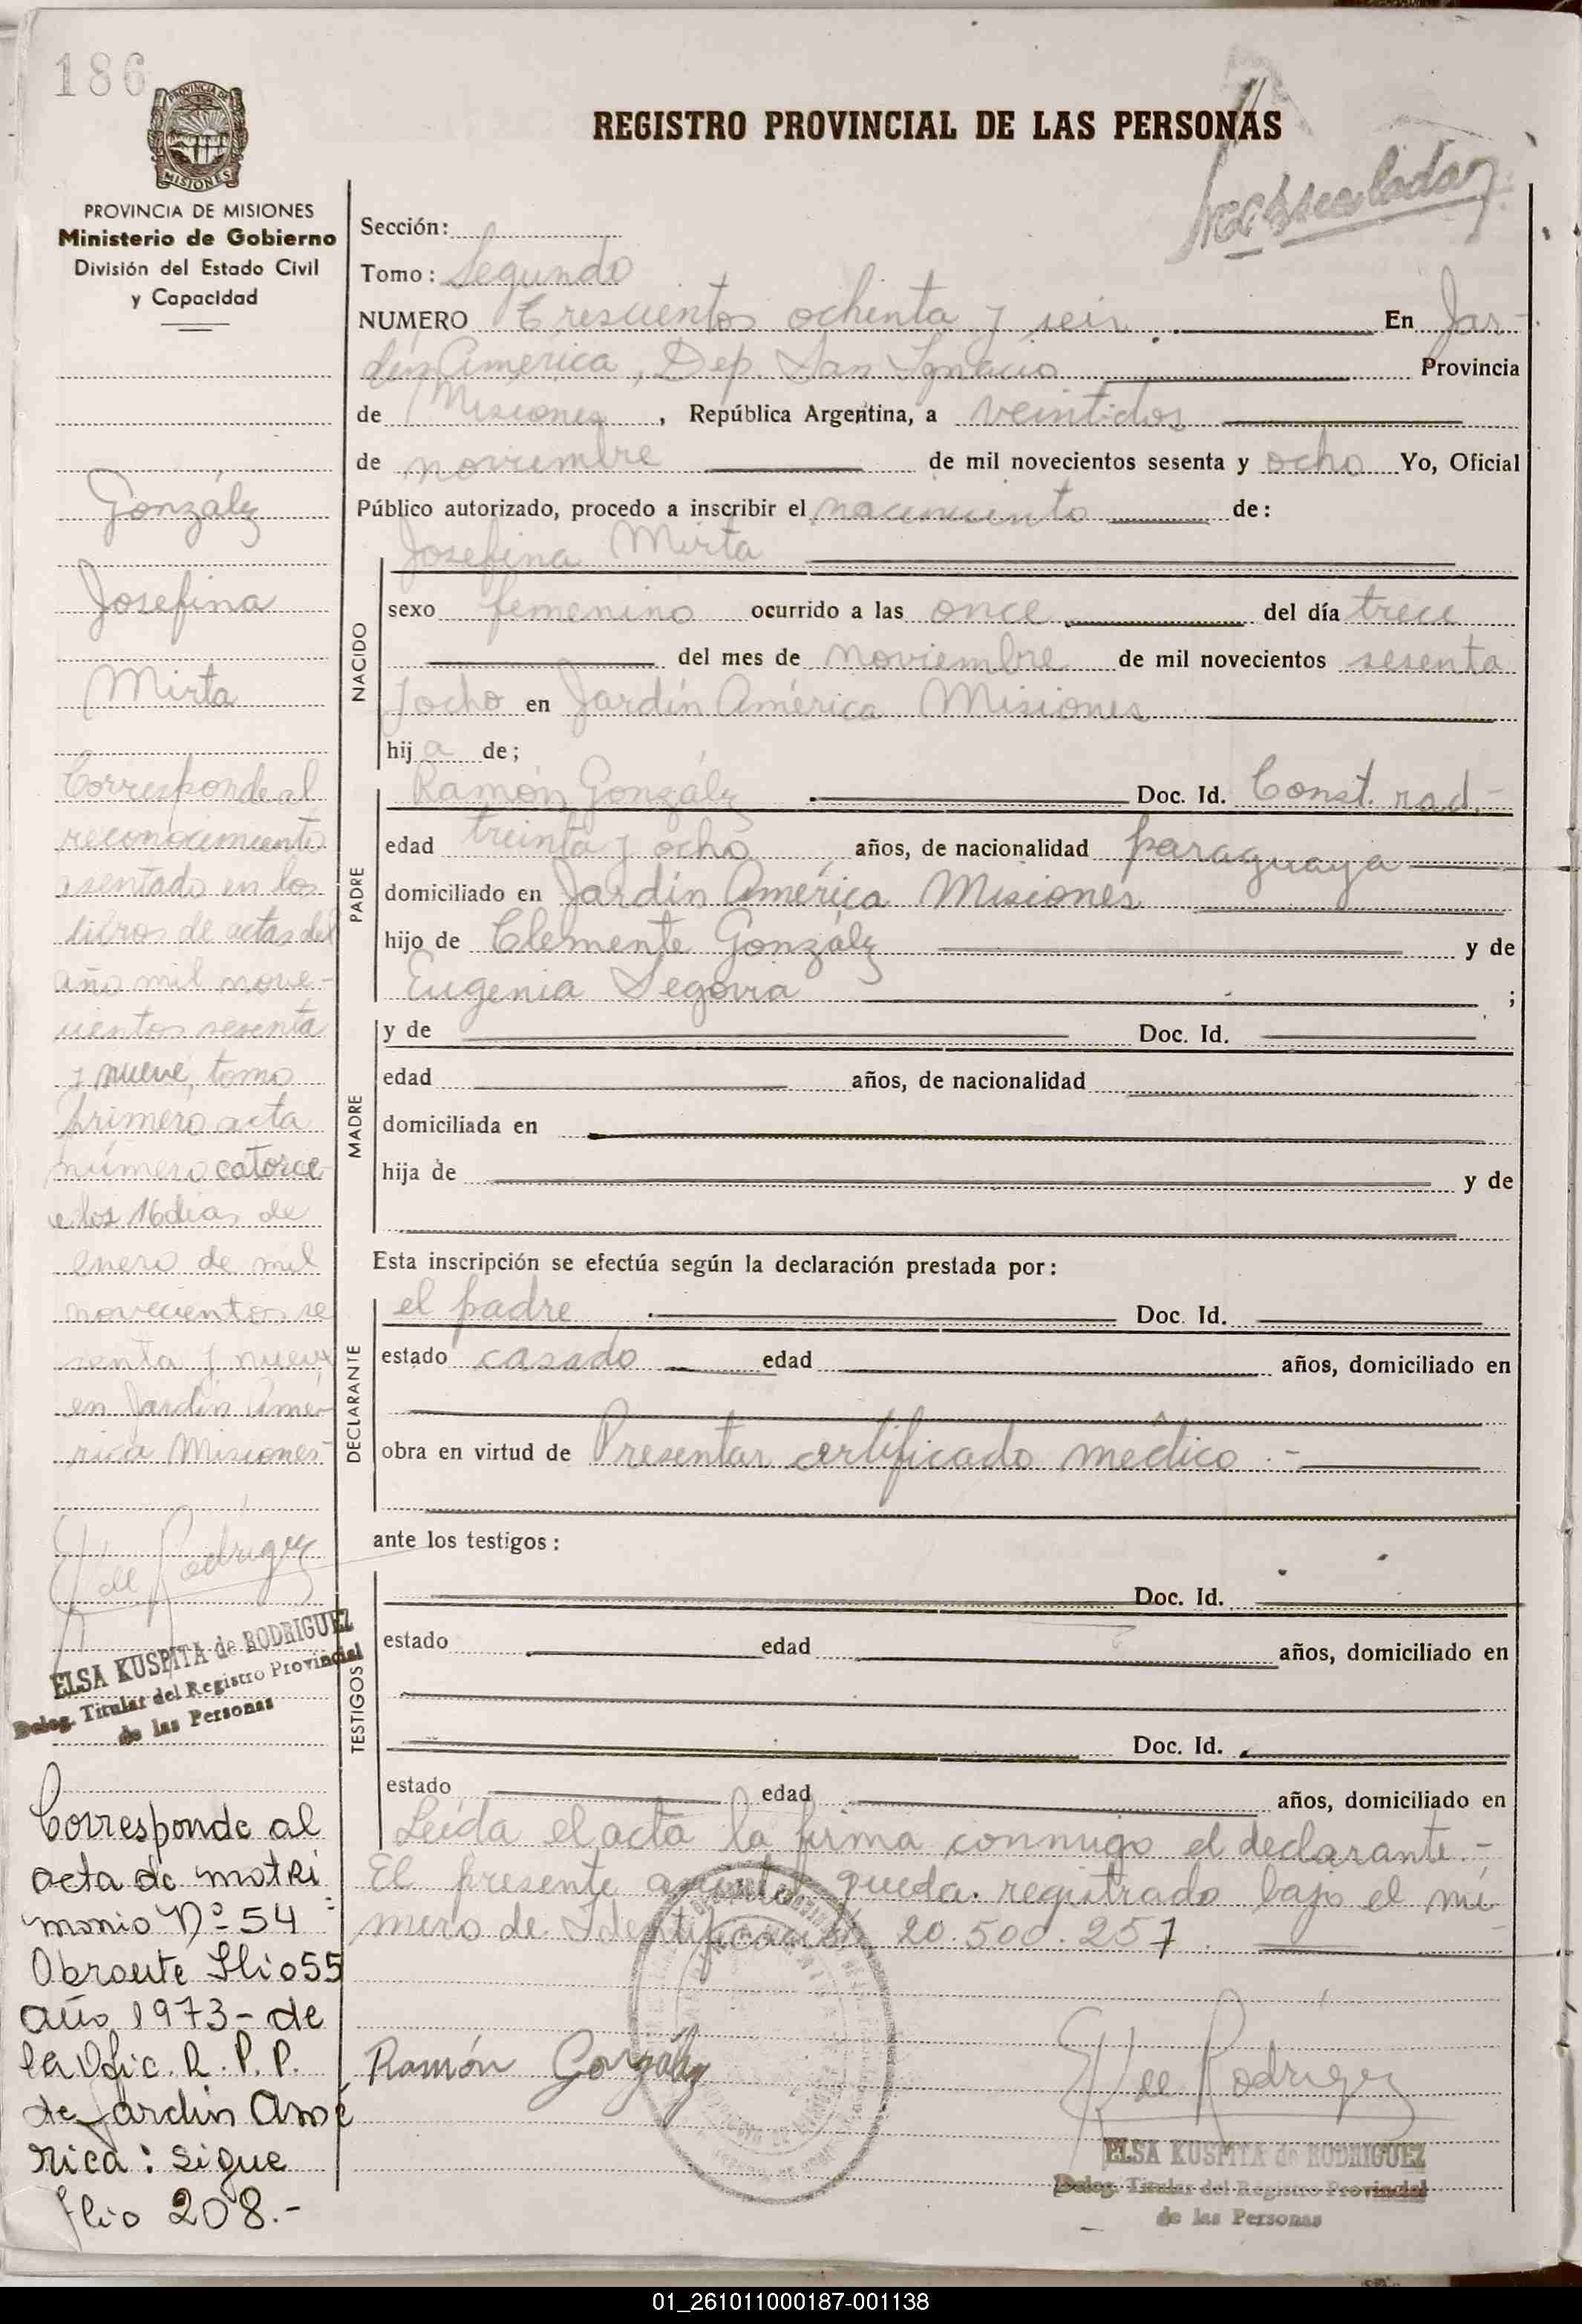 186
PROVINCIA DE
MISIONES
PROVINCIA DE MISIONES
Ministerio de Gobierno
División del Estado Civil
y Capacidad
González
Josefina
Mirta
Corresponde al
reconocimiento
asentado en los
libros de actas del
año mil nove-
cientos sesenta
y nueve, tomo
primero acta
número catorce
a los 16 días de
enero de mil
novecientos se
senta y nueve
en Jardín Amé
rica Misiones
de Rodríguez
ELSA KUSPITA de RODRIGUEZ
Deleg. Titular del Registro Provincial
de las Personas
Corresponde al
acta de matri
monio Nº 54
Obrante flio 55
año 1973 - de
la Ofic. R. P. P.
de Jardin Amé
rica: sigue
flio 208.-
REGISTRO PROVINCIAL DE LAS PERSONAS
Sección:
Tomo: Segundo
NUMERO Trescientos ochenta y seis En Jar-
dín América, Dep. San Ignacio Provincia
de Misiones, República Argentina, a veintidos
de noviembre de mil novecientos sesenta y ocho Yo, Oficial
Público autorizado, procedo a inscribir el nacimiento de:
NACIDO
Josefina Mirta
sexo femenino ocurrido a las once del día trece
del mes de noviembre de mil novecientos sesenta
y ocho en Jardín América Misiones
hija de;
PADRE
Ramón González Doc. Id. Const. rad.-
edad treinta y ocho años, de nacionalidad paraguaya
domiciliado en Jardín América Misiones
hijo de Clemente González y de
Eugenia Segovia ;
MADRE
y de Doc. Id.
edad años, de nacionalidad
domiciliada en
hija de y de
Esta inscripción se efectúa según la declaración prestada por:
DECLARANTE
el padre Doc. Id.
estado casado edad años, domiciliado en
obra en virtud de Presentar certificado médico .-
ante los testigos:
TESTIGOS
Doc. Id.
estado edad años, domiciliado en
Doc. Id.
estado edad años, domiciliado en
Leída el acta la firma conmigo el declarante.-
El presente asiento queda registrado bajo el nú
mero de Identificación 20.500.257.
Ramón González
de Rodríguez
ELSA KUSPITA de RODRIGUEZ
Deleg. Titular del Registro Provincial
de las Personas
01_261011000187-001138